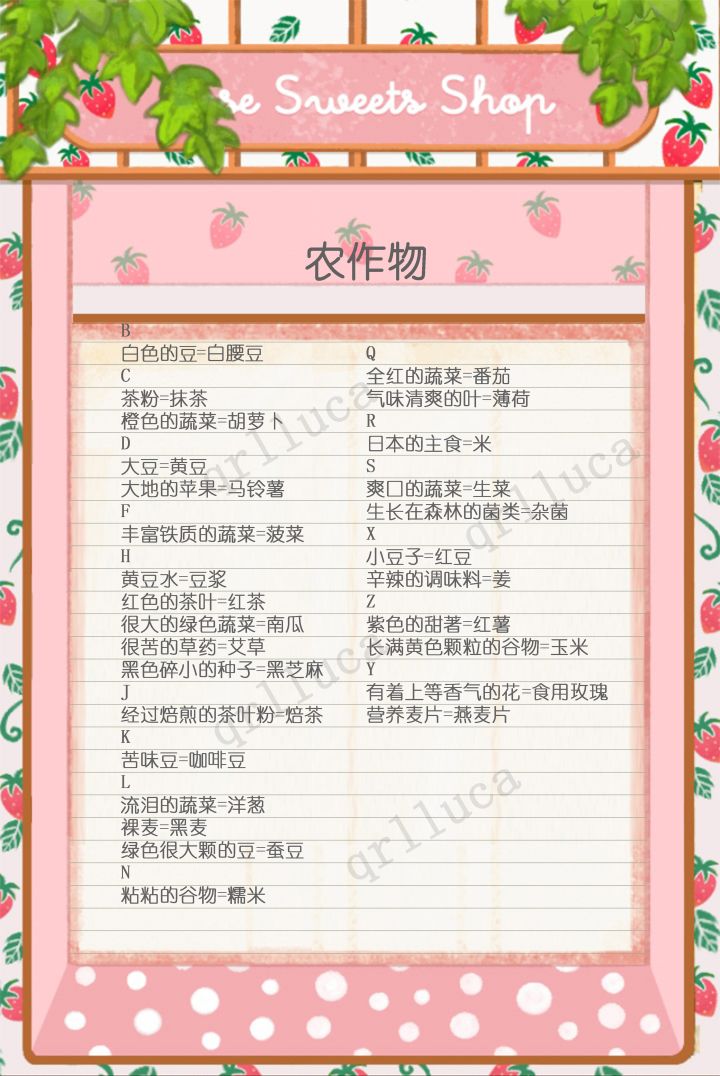 se Sweets Shop
农作物
B
白色的豆=白腰豆
C
茶粉=抹茶
橙色的蔬菜=胡萝卜
D
大豆=黄豆
大地的苹果=马铃薯
F
丰富铁质的蔬菜=菠菜
H
黄豆水=豆浆
红色的茶叶=红茶
很大的绿色蔬菜=南瓜
很苦的草药=艾草
黑色碎小的种子=黑芝麻
J
经过焙煎的茶叶粉=焙茶
K
苦味豆=咖啡豆
L
流泪的蔬菜=洋葱
裸麦=黑麦
绿色很大颗的豆=蚕豆
N
粘粘的谷物=糯米
Q
全红的蔬菜=番茄
气味清爽的叶=薄荷
R
日本的主食=米
S
爽口的蔬菜=生菜
生长在森林的菌类=杂菌
X
小豆子=红豆
辛辣的调味料=姜
Z
紫色的甜著=红薯
长满黄色颗粒的谷物=玉米
Y
有着上等香气的花=食用玫瑰
营养麦片=燕麦片
qrlluca
qrlluca
qrlluca
qrlluca